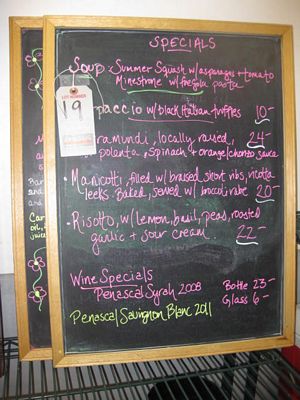 SPECIALS
Soup - Summer Squash w/asparagus + tomato
Minestrone w/fregola pasta
LOT NUMBER
19
paccio w/black Italian truffles 10-
ramundi, locally raised, 24-
polenta, spinach + orange/chorizo sauce
• Manicotti, filled w/braised short ribs, ricotta
leeks. Baked, served w/broccoli rabe 20-
• Risotto, w/lemon, basil, peas, roasted
garlic + sour cream 22-
Wine Specials
Penascal Syrah 2008
Bottle 23-
Glass 6-
Penascal Sauvignon Blanc 2011